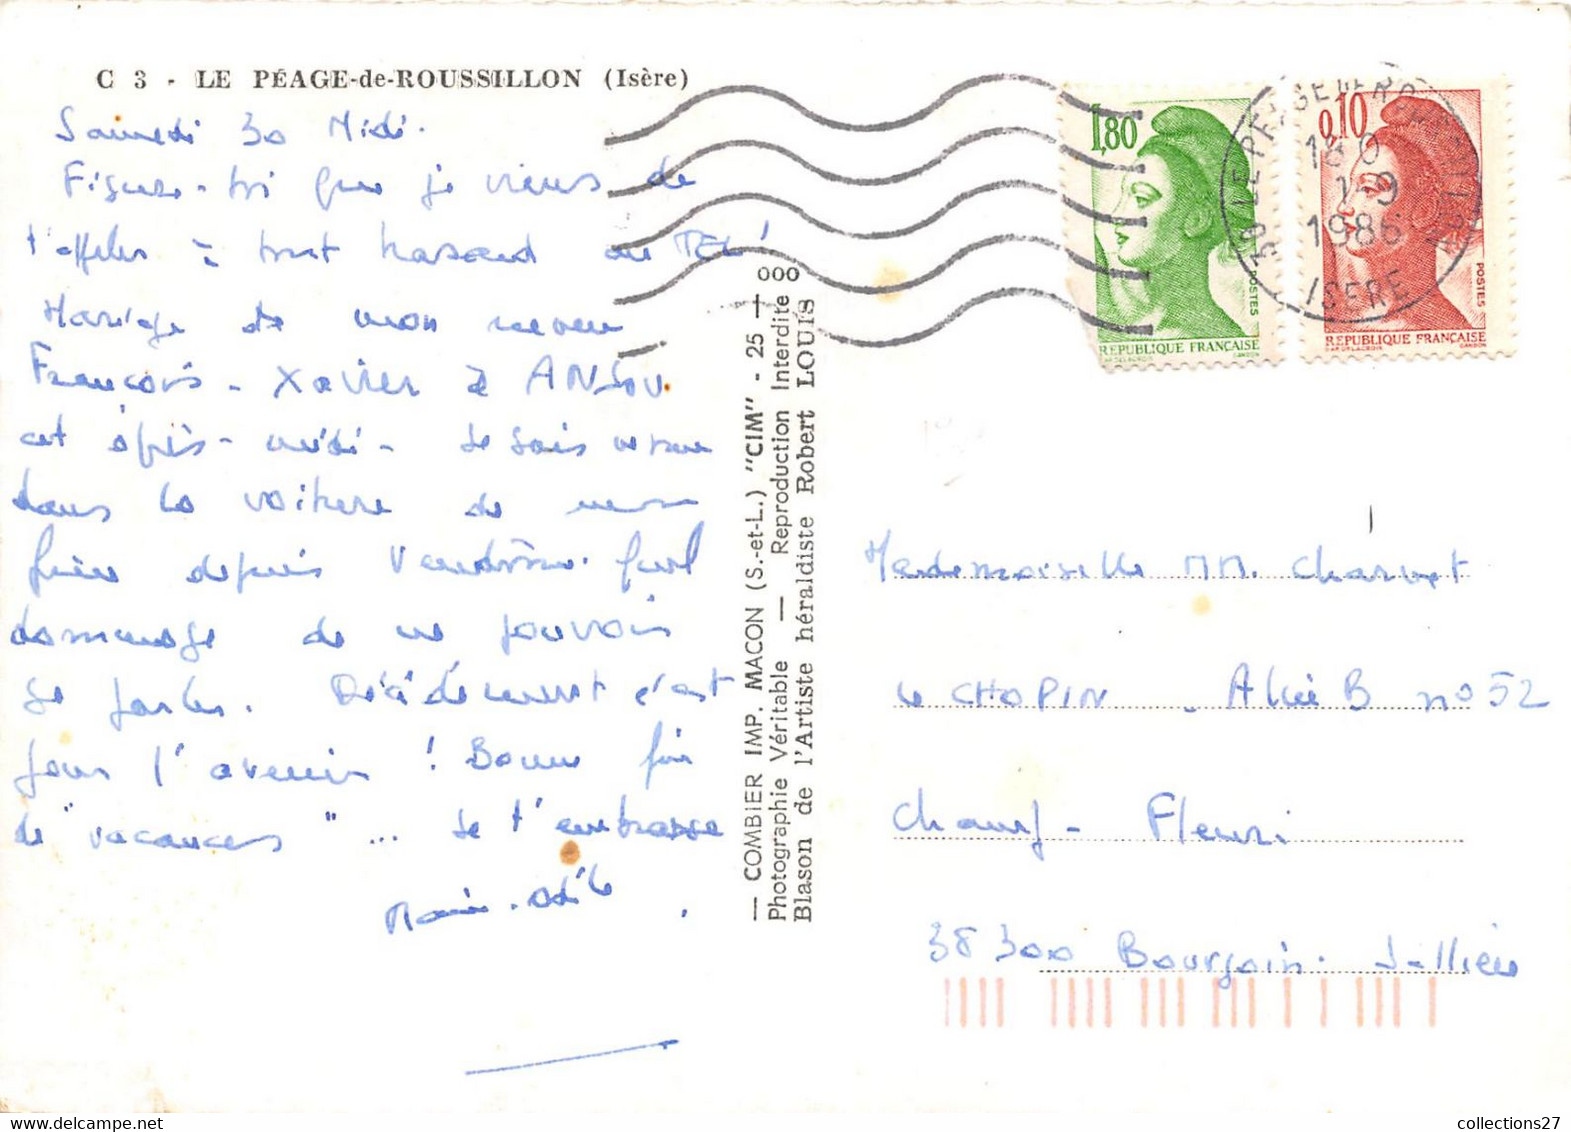 C 3 - LE PÉAGE-de-ROUSSILLON (Isère)
Samedi 30 Midi.
Figure-toi que je viens de
t'appeler à tout hasard au TEL!
Mariage de mon neveu
François-Xavier à ANJOU
cet après-midi - Je suis venue
dans la voiture de mon
frère depuis Vendôme. Quel
dommage de ne pouvoir
se parler. Décidément c'est
pour l'avenir ! Bonne fin
de "vacances" ... Je t'embrasse
Marie-Odile.
— COMBIER IMP. MACON (S.-et-L.) "CIM" - 25 - 1 000
Photographie Véritable — Reproduction Interdite
Blason de l'Artiste héraldiste Robert LOUIS
1,80
POSTES
REPUBLIQUE FRANÇAISE
0,10
POSTES
REPUBLIQUE FRANÇAISE
38 LE PEAGE DE ROUSSILLON
1-9
1986
ISERE
Mademoiselle MM. Charvet
Le CHOPIN - Allée B n° 52
Champ-Fleuri
38 300 Bourgoin-Jallieu
collections27